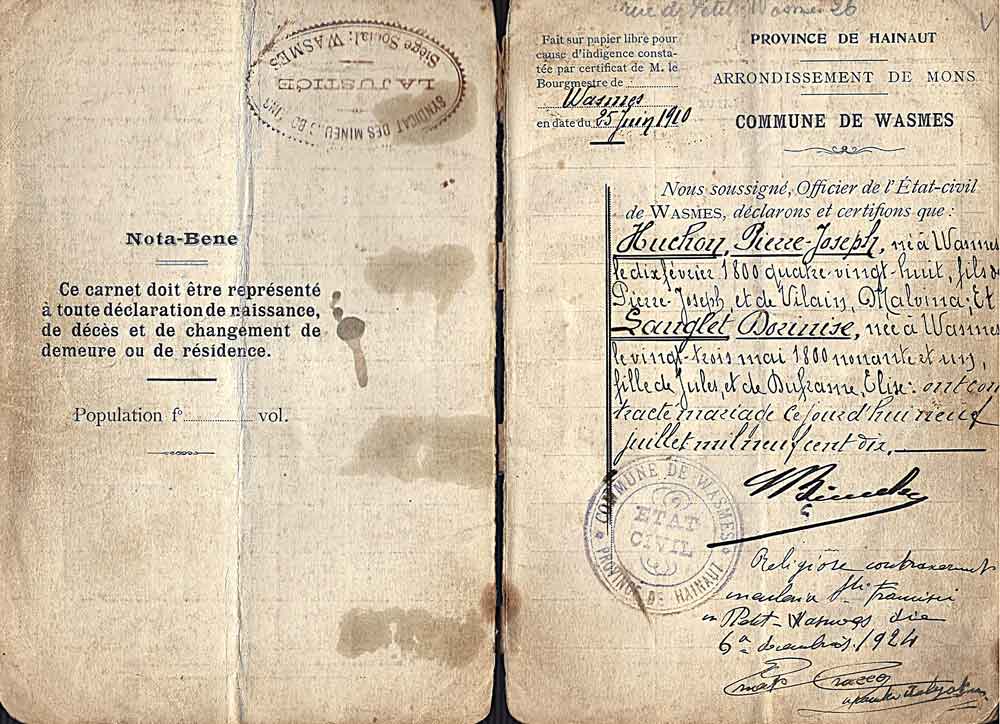 SYNDICAT DES MINEU
LA JUSTICE
Siège Social: WASMES
Nota-Bene
Ce carnet doit être représenté
à toute déclaration de naissance,
de décès et de changement de
demeure ou de résidence.
Population f° vol.
rue de Petit-Wasmes 26
Fait sur papier libre pour
cause d'indigence consta-
tée par certificat de M. le
Bourgmestre de
Wasmes
en date du 25 Juin 1910
PROVINCE DE HAINAUT
ARRONDISSEMENT DE MONS
COMMUNE DE WASMES
Nous soussigné, Officier de l'État-civil
de WASMES, déclarons et certifions que :
Huchon, Pierre-Joseph, né à Wasmes
le dix février 1800 quatre-vingt-huit, fils de
Pierre-Joseph, et de Vilain, Malvina; Et
Langlet Dorinise, née à Wasmes
le vingt-trois mai 1800 nonante et un,
fille de Jules, et de Dufrasne, Elise: ont con
tracté mariage ce jourd'hui neuf
juillet mil neuf cent dix.
COMMUNE DE WASMES
ETAT
CIVIL
PROVINCE DE HAINAUT
Religiose contraxerunt
in Petit-Wasmes die
6a decembris 1924